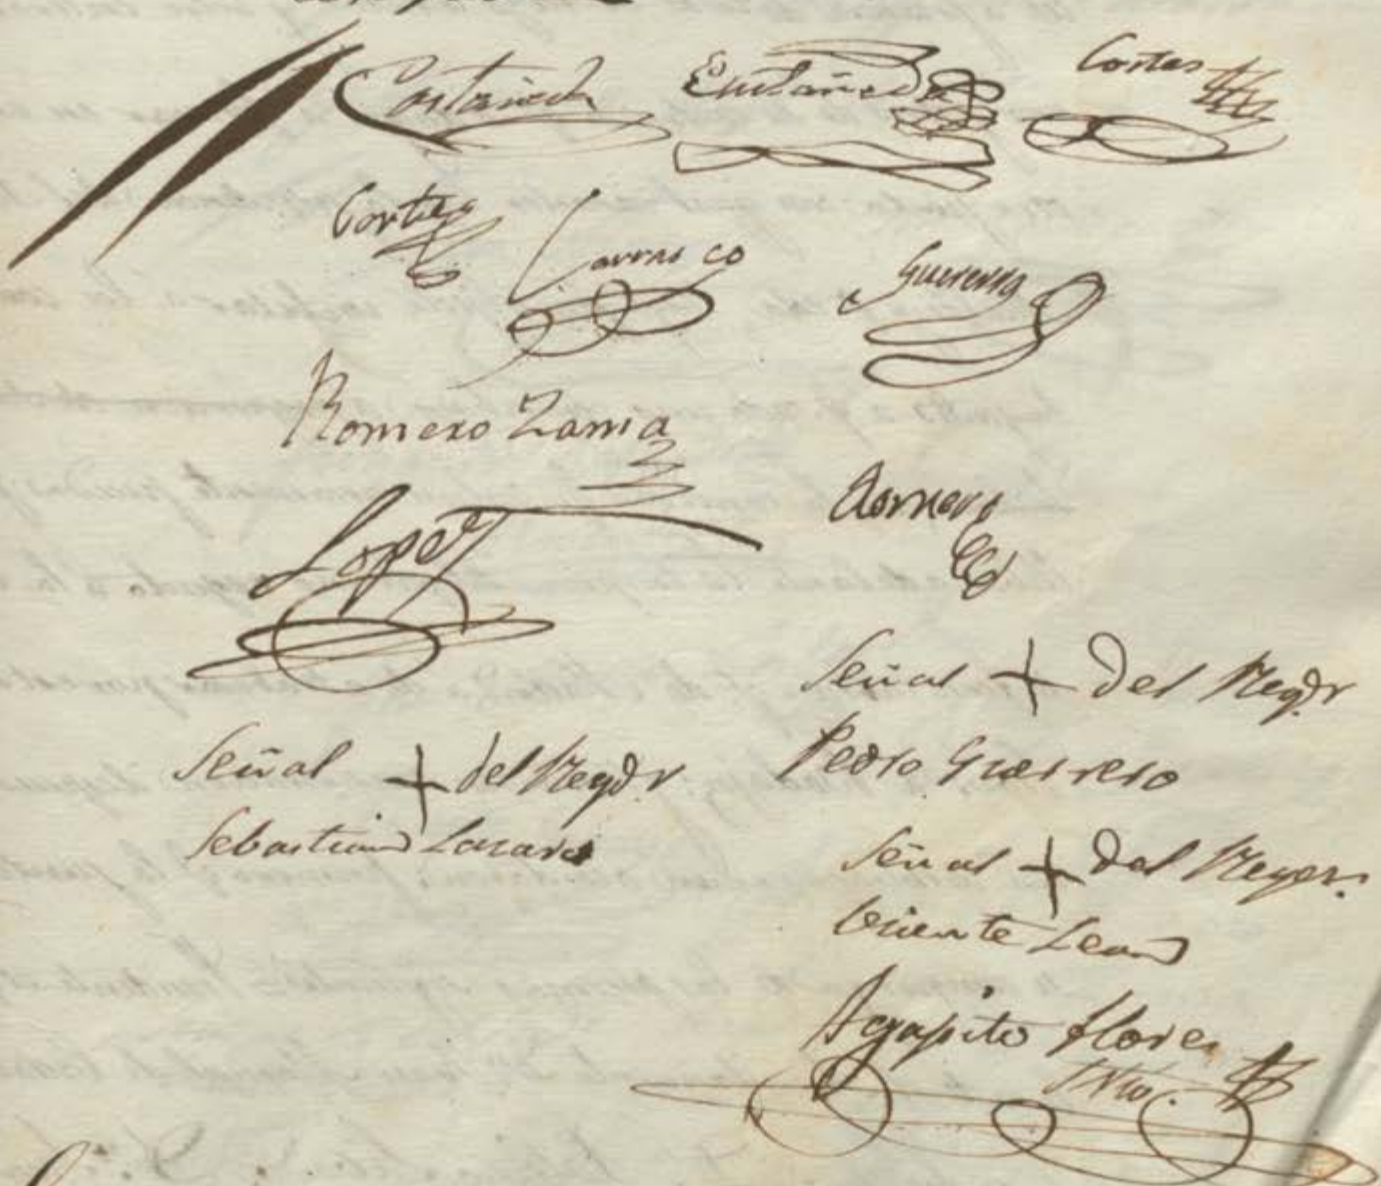 Castañeda Castañeda Cortes
Cortes Carrasco Guerrero
Romero Zama
Lopez Romero
Señal + del Regdr
Pedro Guerrero
Señal + del Regdr
Sebastian Lazaro
Señal + del Regor.
Vicente Leon
Agapito Flores
Srio.